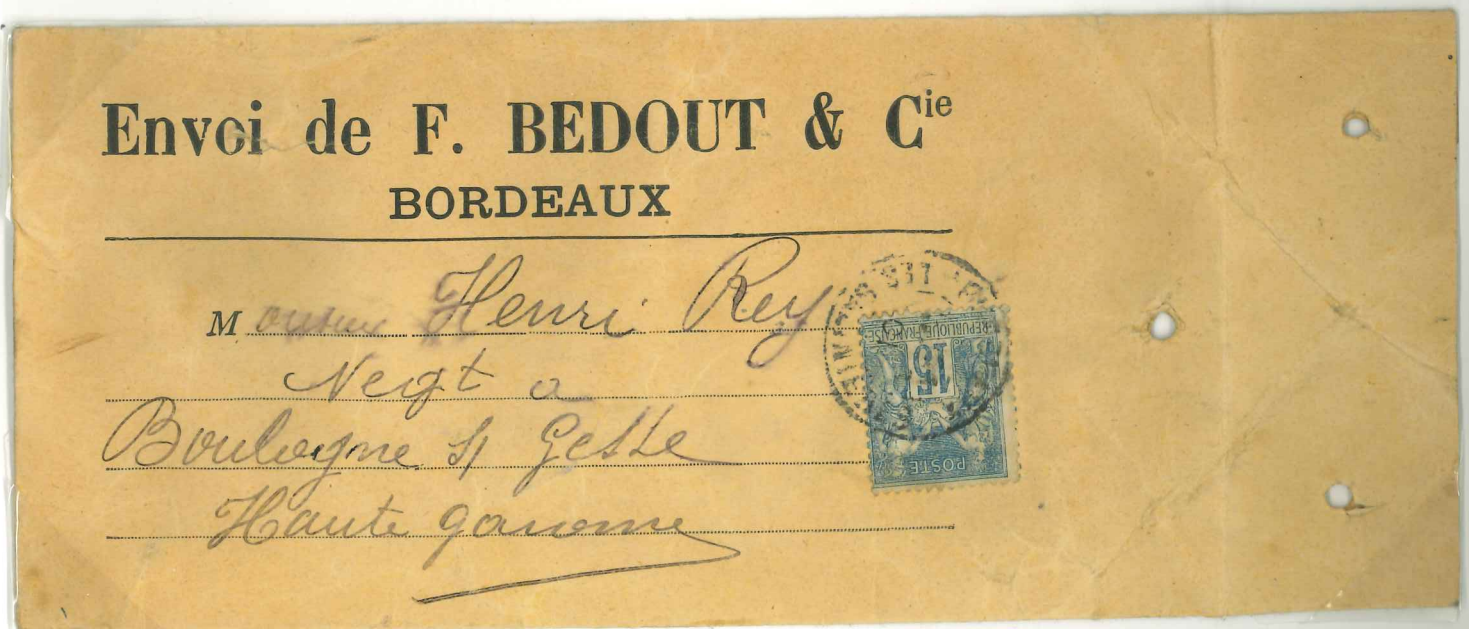 Envoi de F. BEDOUT & Cie
BORDEAUX
Monsieur Henri Rey
Negt a
Boulogne s/ Gesse
Haute garonne
REPUBLIQUE FRANCAISE
15
POSTE